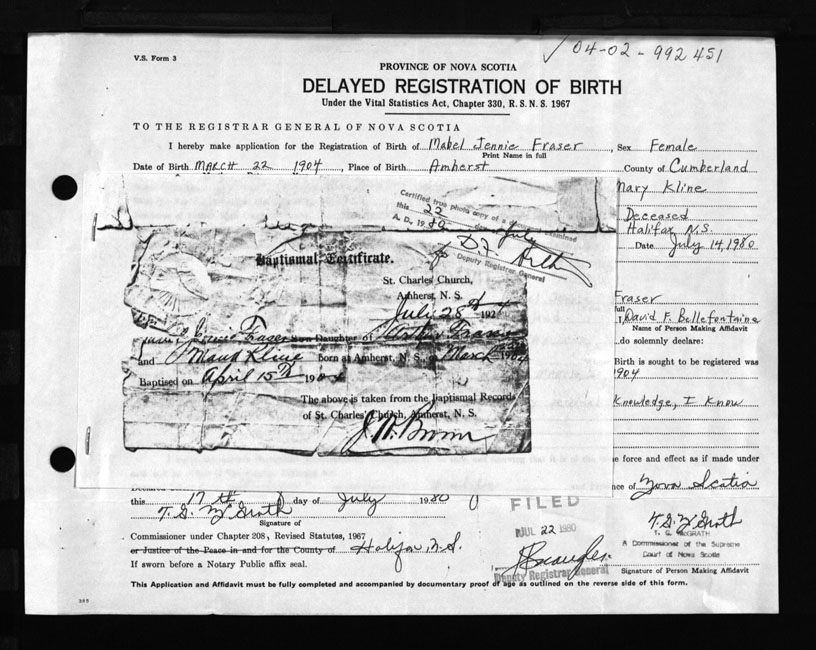 04-02-992451
V.S. Form 3
PROVINCE OF NOVA SCOTIA
DELAYED REGISTRATION OF BIRTH
Under the Vital Statistics Act, Chapter 330, R.S.N.S. 1967
TO THE REGISTRAR GENERAL OF NOVA SCOTIA
I hereby make application for the Registration of Birth of Mabel Jennie Fraser, Sex Female
Print Name in full
Date of Birth MARCH 22 1904, Place of Birth Amherst, County of Cumberland
Mary Kline
Deceased
Halifax N.S.
Date July 14, 1980
Certified true photo copy of a examined
this 22 day July
A. D. 1980
Deputy Registrar General
Baptismal Certificate.
St. Charles' Church,
Amherst, N. S.
July 28th 192
Jennie Fraser Daughter of Arthur Fraser
and Maud Kline Born at Amherst, N. S., March 1904
Baptised on April 15th 190
The above is taken from the Baptismal Records
of St. Charles' Church, Amherst, N. S.
Fraser
full
I, David F. Bellefontaine
Name of Person Making Affidavit
do solemnly declare:
Birth is sought to be registered was
1904
Knowledge, I Know
force and effect as if made under
of Nova Scotia
this 17th day of July 1980
T. G. McGrath
Signature of
Commissioner under Chapter 208, Revised Statutes, 1967
or Justice of the Peace in and for the County of Halifax N.S.
If sworn before a Notary Public affix seal.
FILED
JUL 22 1980
Deputy Registrar General
T. G. McGrath
T. G. McGRATH
A Commissioner of the Supreme
Court of Nova Scotia
Signature of Person Making Affidavit
This Application and Affidavit must be fully completed and accompanied by documentary proof of age as outlined on the reverse side of this form.